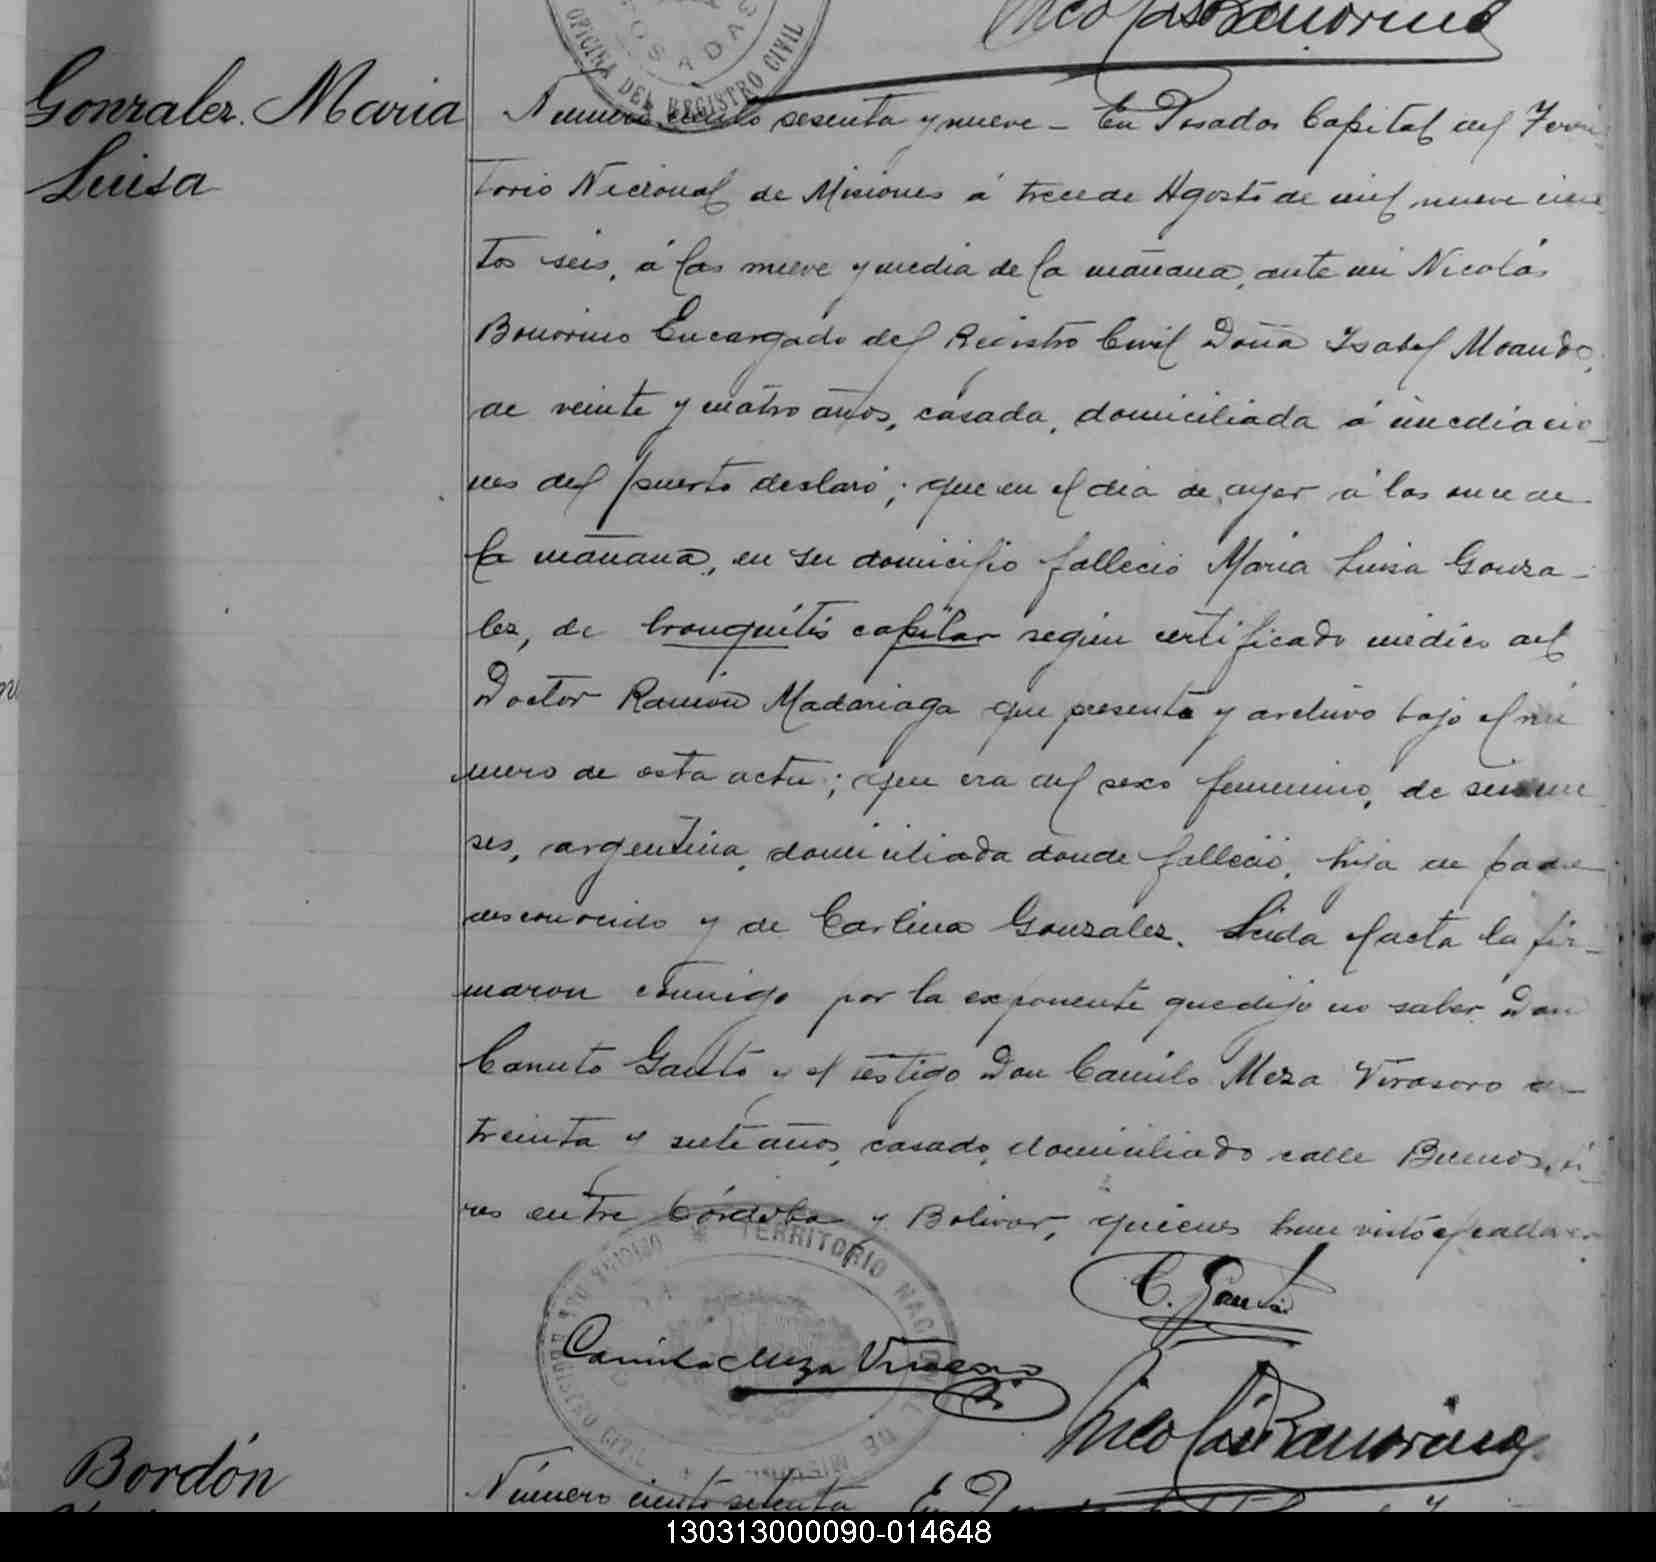 Nicolás Bonorino
POSADAS
OFICINA DEL REGISTRO CIVIL
Gonzalez Maria
Luisa
Numero ciento sesenta y nueve – En Posadas Capital del Terri
torio Nacional de Misiones á trece de Agosto de mil nueve cien
tos seis, á las nueve y media de la mañana, ante mi Nicolás
Bonorino Encargado del Registro Civil Doña Isabel Moando,
de veinte y cuatro años, casada, domiciliada á inmediacio-
nes del puerto declaró; que en el dia de ayer á las once de
la mañana, en su domicilio falleció Maria Luisa Gonza-
lez, de bronquitis capilar según certificado médico del
Doctor Ramón Madariaga que presenta y archivo bajo el nú
mero de esta acta; que era del sexo femenino, de seis me
ses, argentina, domiciliada donde falleció, hija de padre
desconocido y de Carlina Gonzalez. Leida el acta la fir-
maron conmigo por la exponente que dijo no saber Don
Canuto Gauto y el testigo Don Camilo Meza Virasoro de
treinta y siete años, casado, domiciliado calle Buenos Ai-
res entre Córdoba y Bolivar, quienes han visto el cadaver
C. Gauto
TERRITORIO NACIONAL DE MISIONES
Camilo Meza Virasoro
Nicolás Bonorino
Bordón
Número ciento setenta En
130313000090-014648